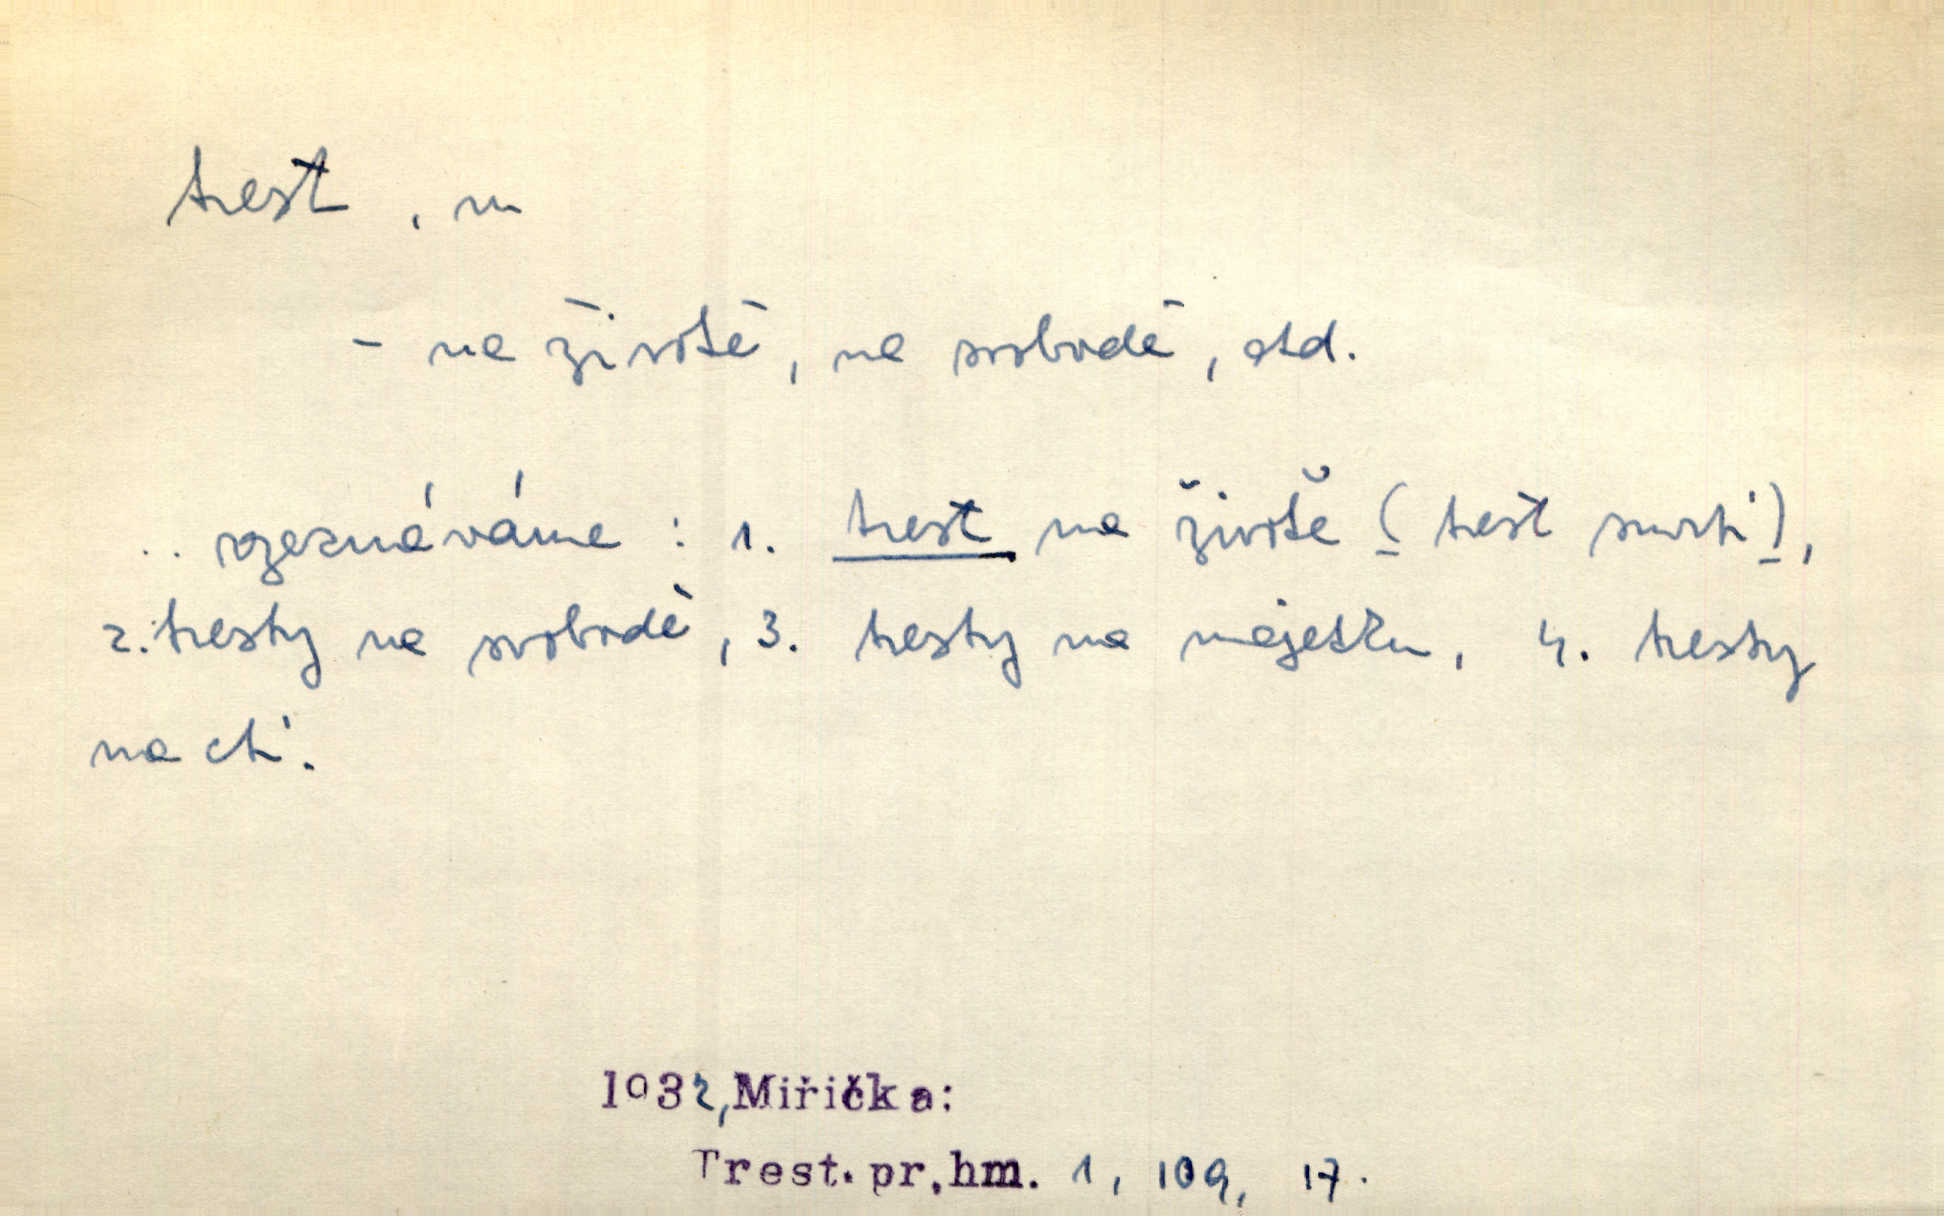 trest , m
– na životě, na svobodě, atd.
.. rozeznáváme : 1. trest na životě (trest smrti),
2. tresty na svobodě, 3. tresty na majetku, 4. tresty
na cti.
1932, Miřička:
Trest.pr.hm. 1, 109, 17.